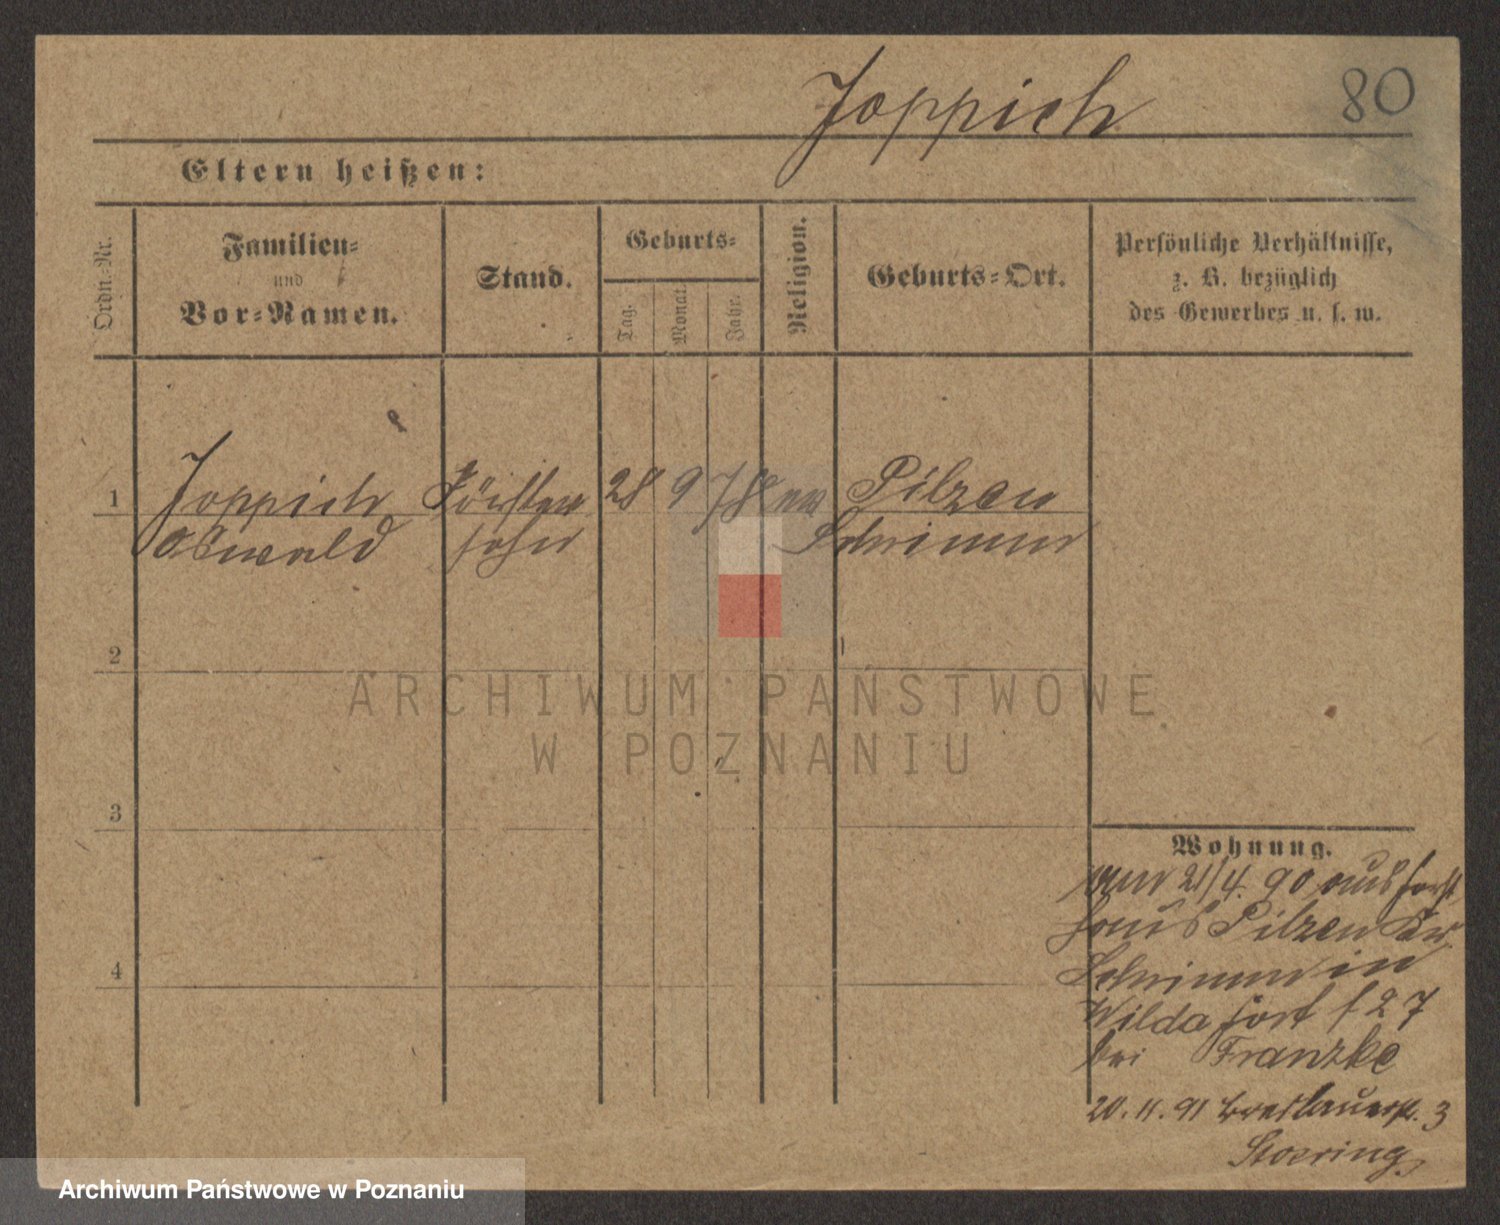 Joppich
80
Eltern heißen:
Ordn.-Nr.
Familien-
und
Vor-Namen.
Stand.
Geburts-
Tag.
Monat.
Jahr.
Religion.
Geburts-Ort.
Persönliche Verhältnisse,
z. B. bezüglich
des Gewerbes u. s. w.
1
Joppich
Oswald
Förster
sohn
28
9
78
ev
Pilzen
Schrimm
2
3
4
ARCHIWUM PAŃSTWOWE
W POZNANIU
Wohnung.
21/4. 90 aus Forst
haus Pilzen Kr.
Schrimm in
Wilda fort f 27
bei Franzke
20. 11. 91 Breslauerstr. 3
Stoering
Archiwum Państwowe w Poznaniu